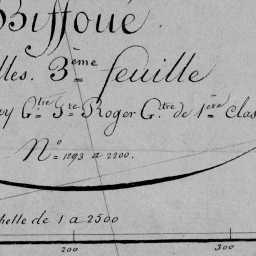 Biffoué.
lles. 3ème feuille
ey G.tre Sre Roger G.tre de 1ère Clas
No = 1293 a 2200.
helle de 1 a 2500
200 300